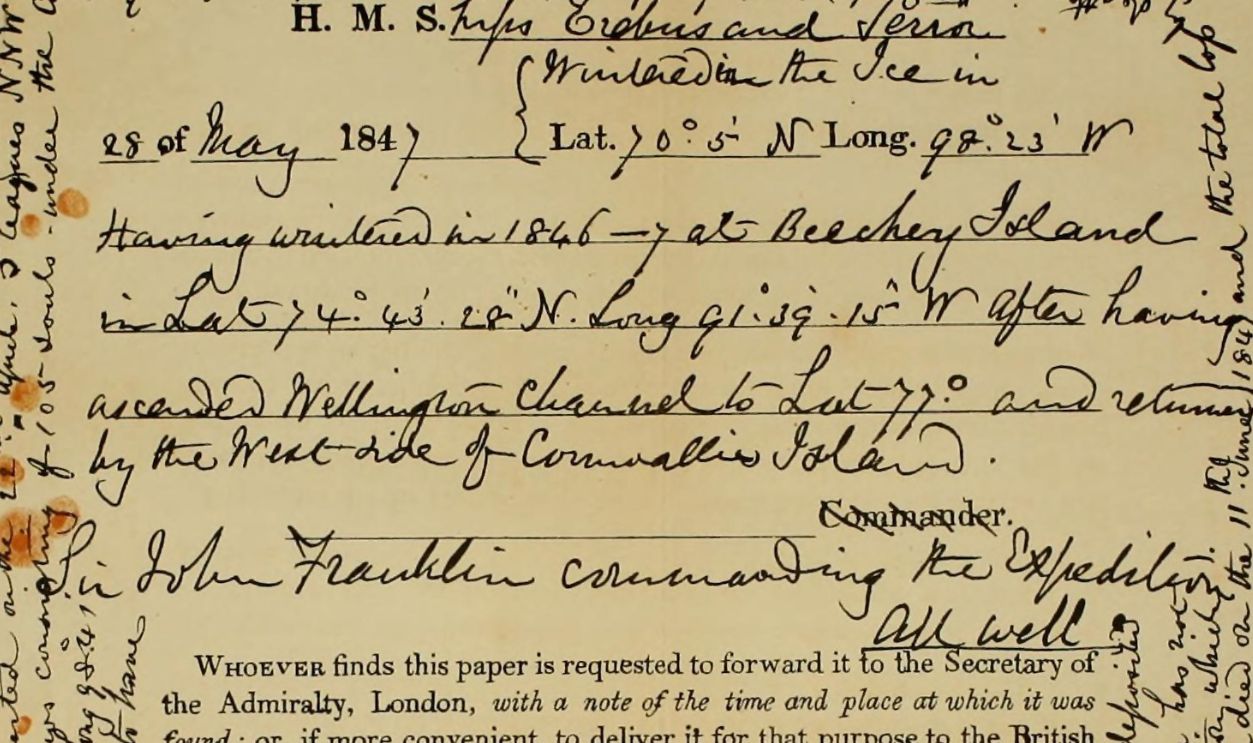 H. M. S. hips Erebus and Terror
Wintered in the Ice in
28 of May 1847 Lat. 70° 5' N Long. 98° 23' W
Having wintered in 1846-7 at Beechey Island
in Lat 74° 43' 28" N. Long 91° 39' 15" W After having
ascended Wellington Channel to Lat 77° and returned
by the West side of Cornwallis Island.
Commander.
Sir John Franklin commanding the Expedition.
All well
WHOEVER finds this paper is requested to forward it to the Secretary of
the Admiralty, London, with a note of the time and place at which it was
found: or, if more convenient, to deliver it for that purpose to the British
leagues NNW
of 105 souls under the
and the total loss
died on the 11th June 1847
deposited
has not
to have